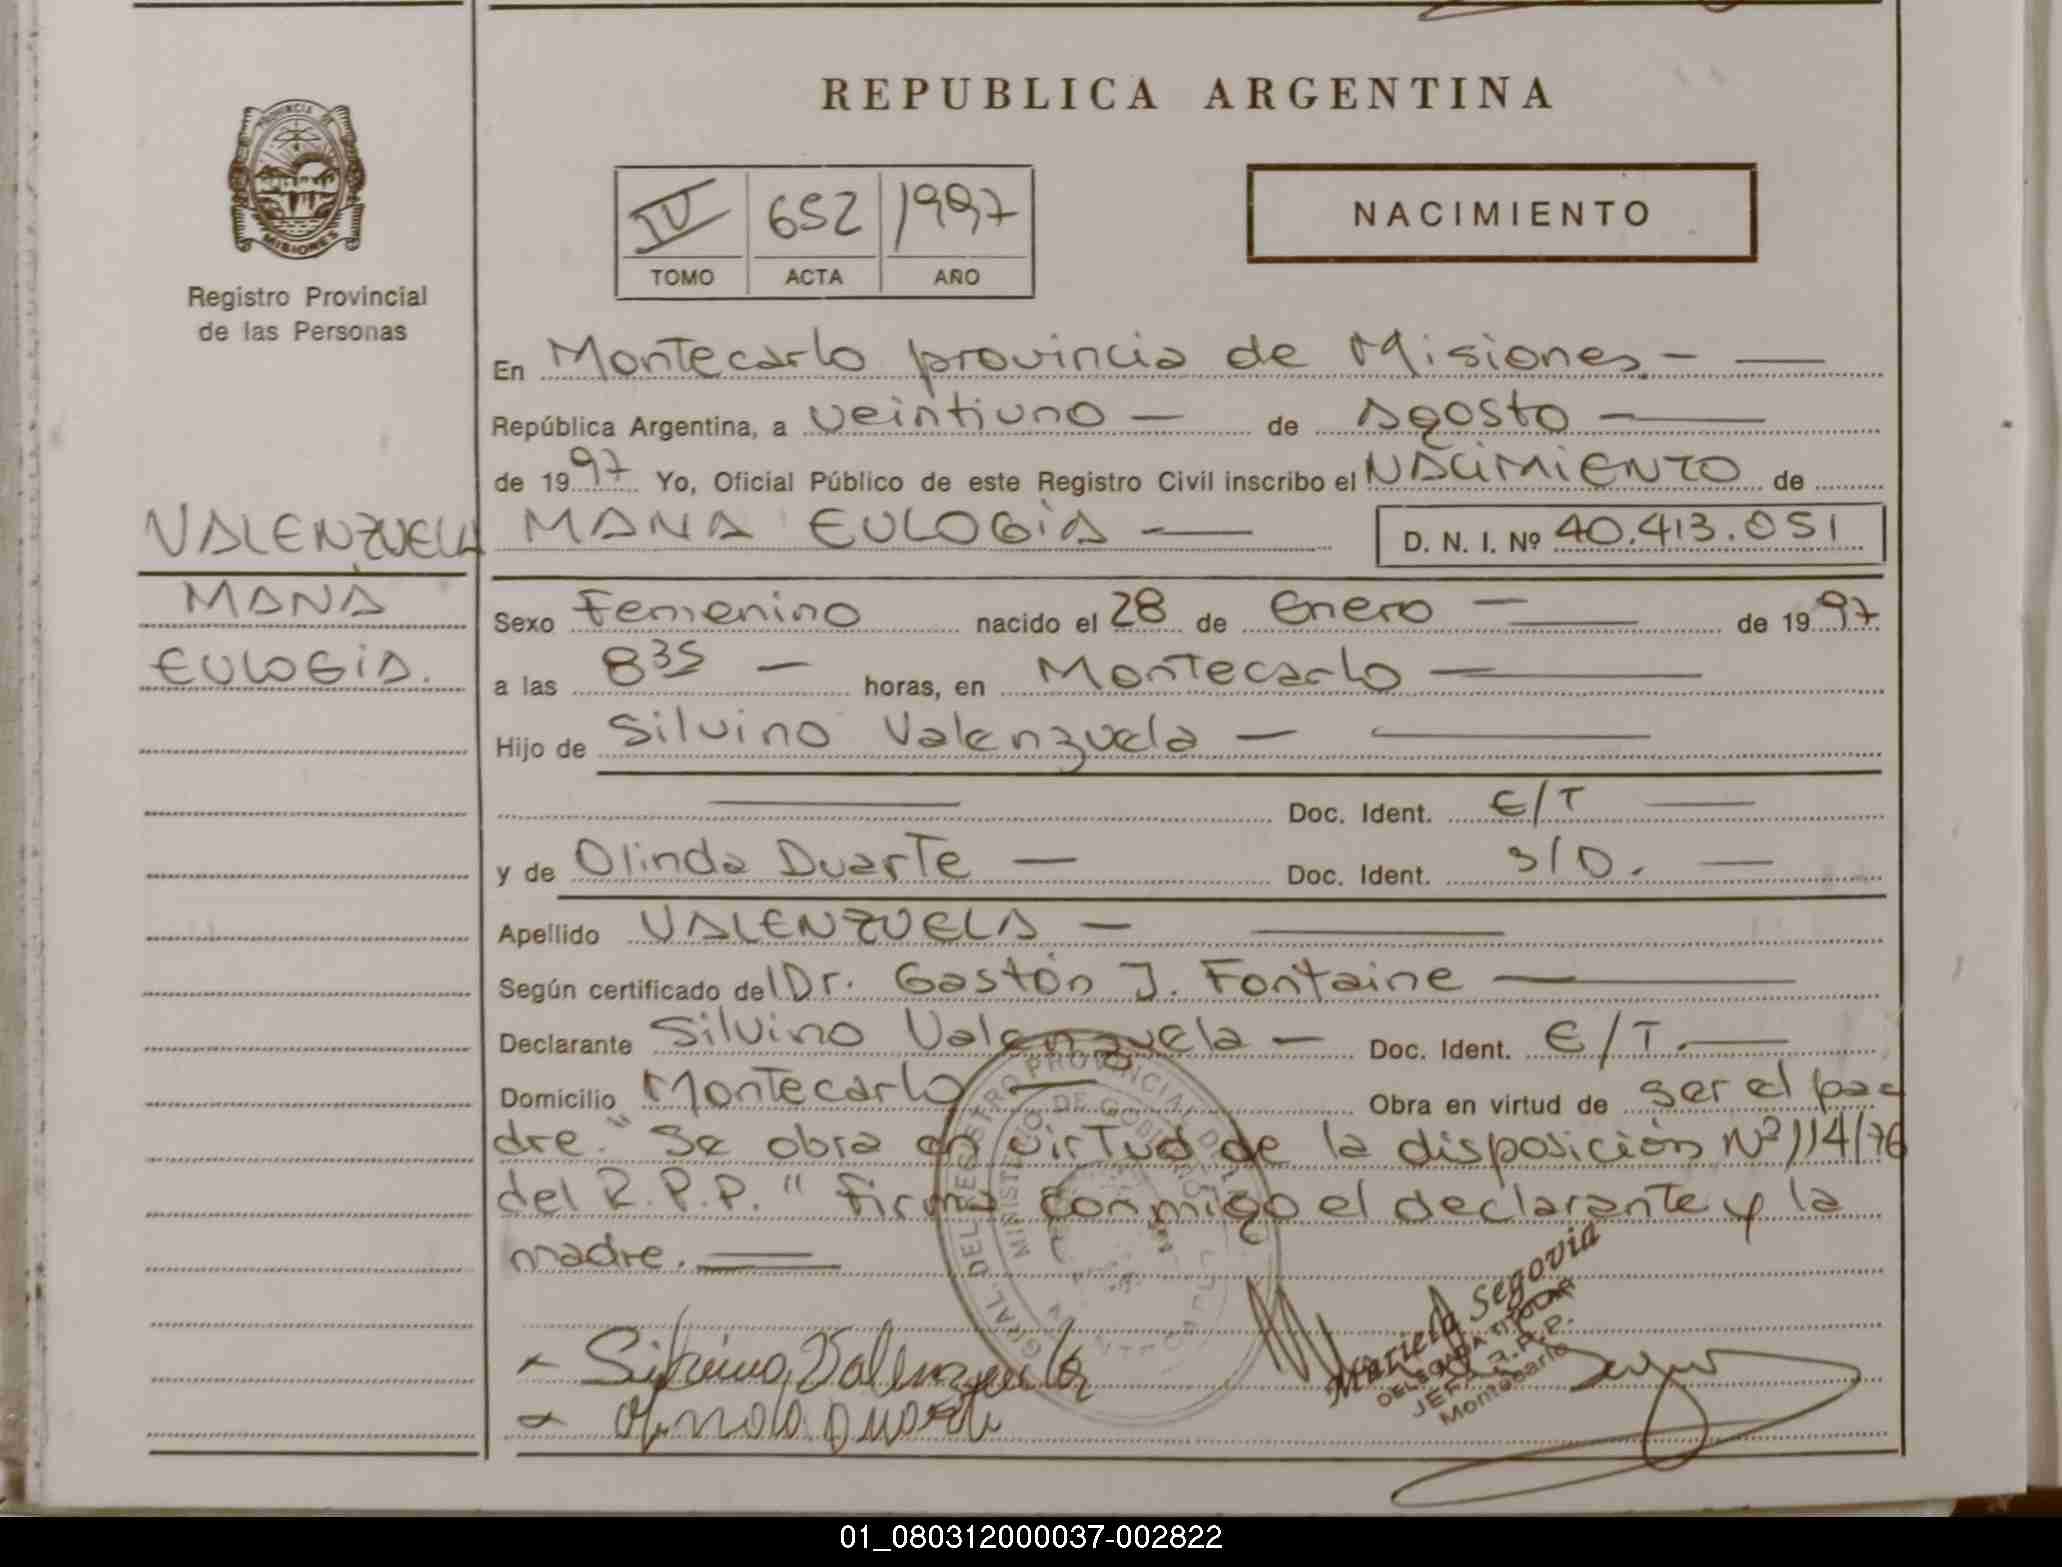 REPUBLICA ARGENTINA
PROVINCIA DE
MISIONES
Registro Provincial
de las Personas
IV 652 1997
TOMO ACTA AÑO
NACIMIENTO
En Montecarlo provincia de Misiones.-
República Argentina, a veintiuno - de Agosto -
de 1997 Yo, Oficial Público de este Registro Civil inscribo el NACIMIENTO de
VALENZUELA
MANA
EULOGIA.
MANA EULOGIA - D. N. I. Nº 40.413.051
Sexo Femenino nacido el 28 de Enero - de 1997
a las 8 35 - horas, en Montecarlo -
Hijo de Silvino Valenzuela -
Doc. Ident. E/T
y de Olinda Duarte - Doc. Ident. S/D. -
Apellido VALENZUELA -
Según certificado del Dr. Gastón J. Fontaine -
Declarante Silvino Valenzuela - Doc. Ident. E/T.-
Domicilio Montecarlo - Obra en virtud de ser el pa
dre. "Se obra en virtud de la disposición Nº 114/76
del R.P.P." firma conmigo el declarante y la
madre.
DEL REGISTRO PROVINCIAL DE
MINISTERIO DE GOBIERNO
Silvino Valenzuela
Olinda Duarte
Mariela Segovia
DELEGADA TITULAR
JEF. R.P.P.
Montecarlo
01_080312000037-002822